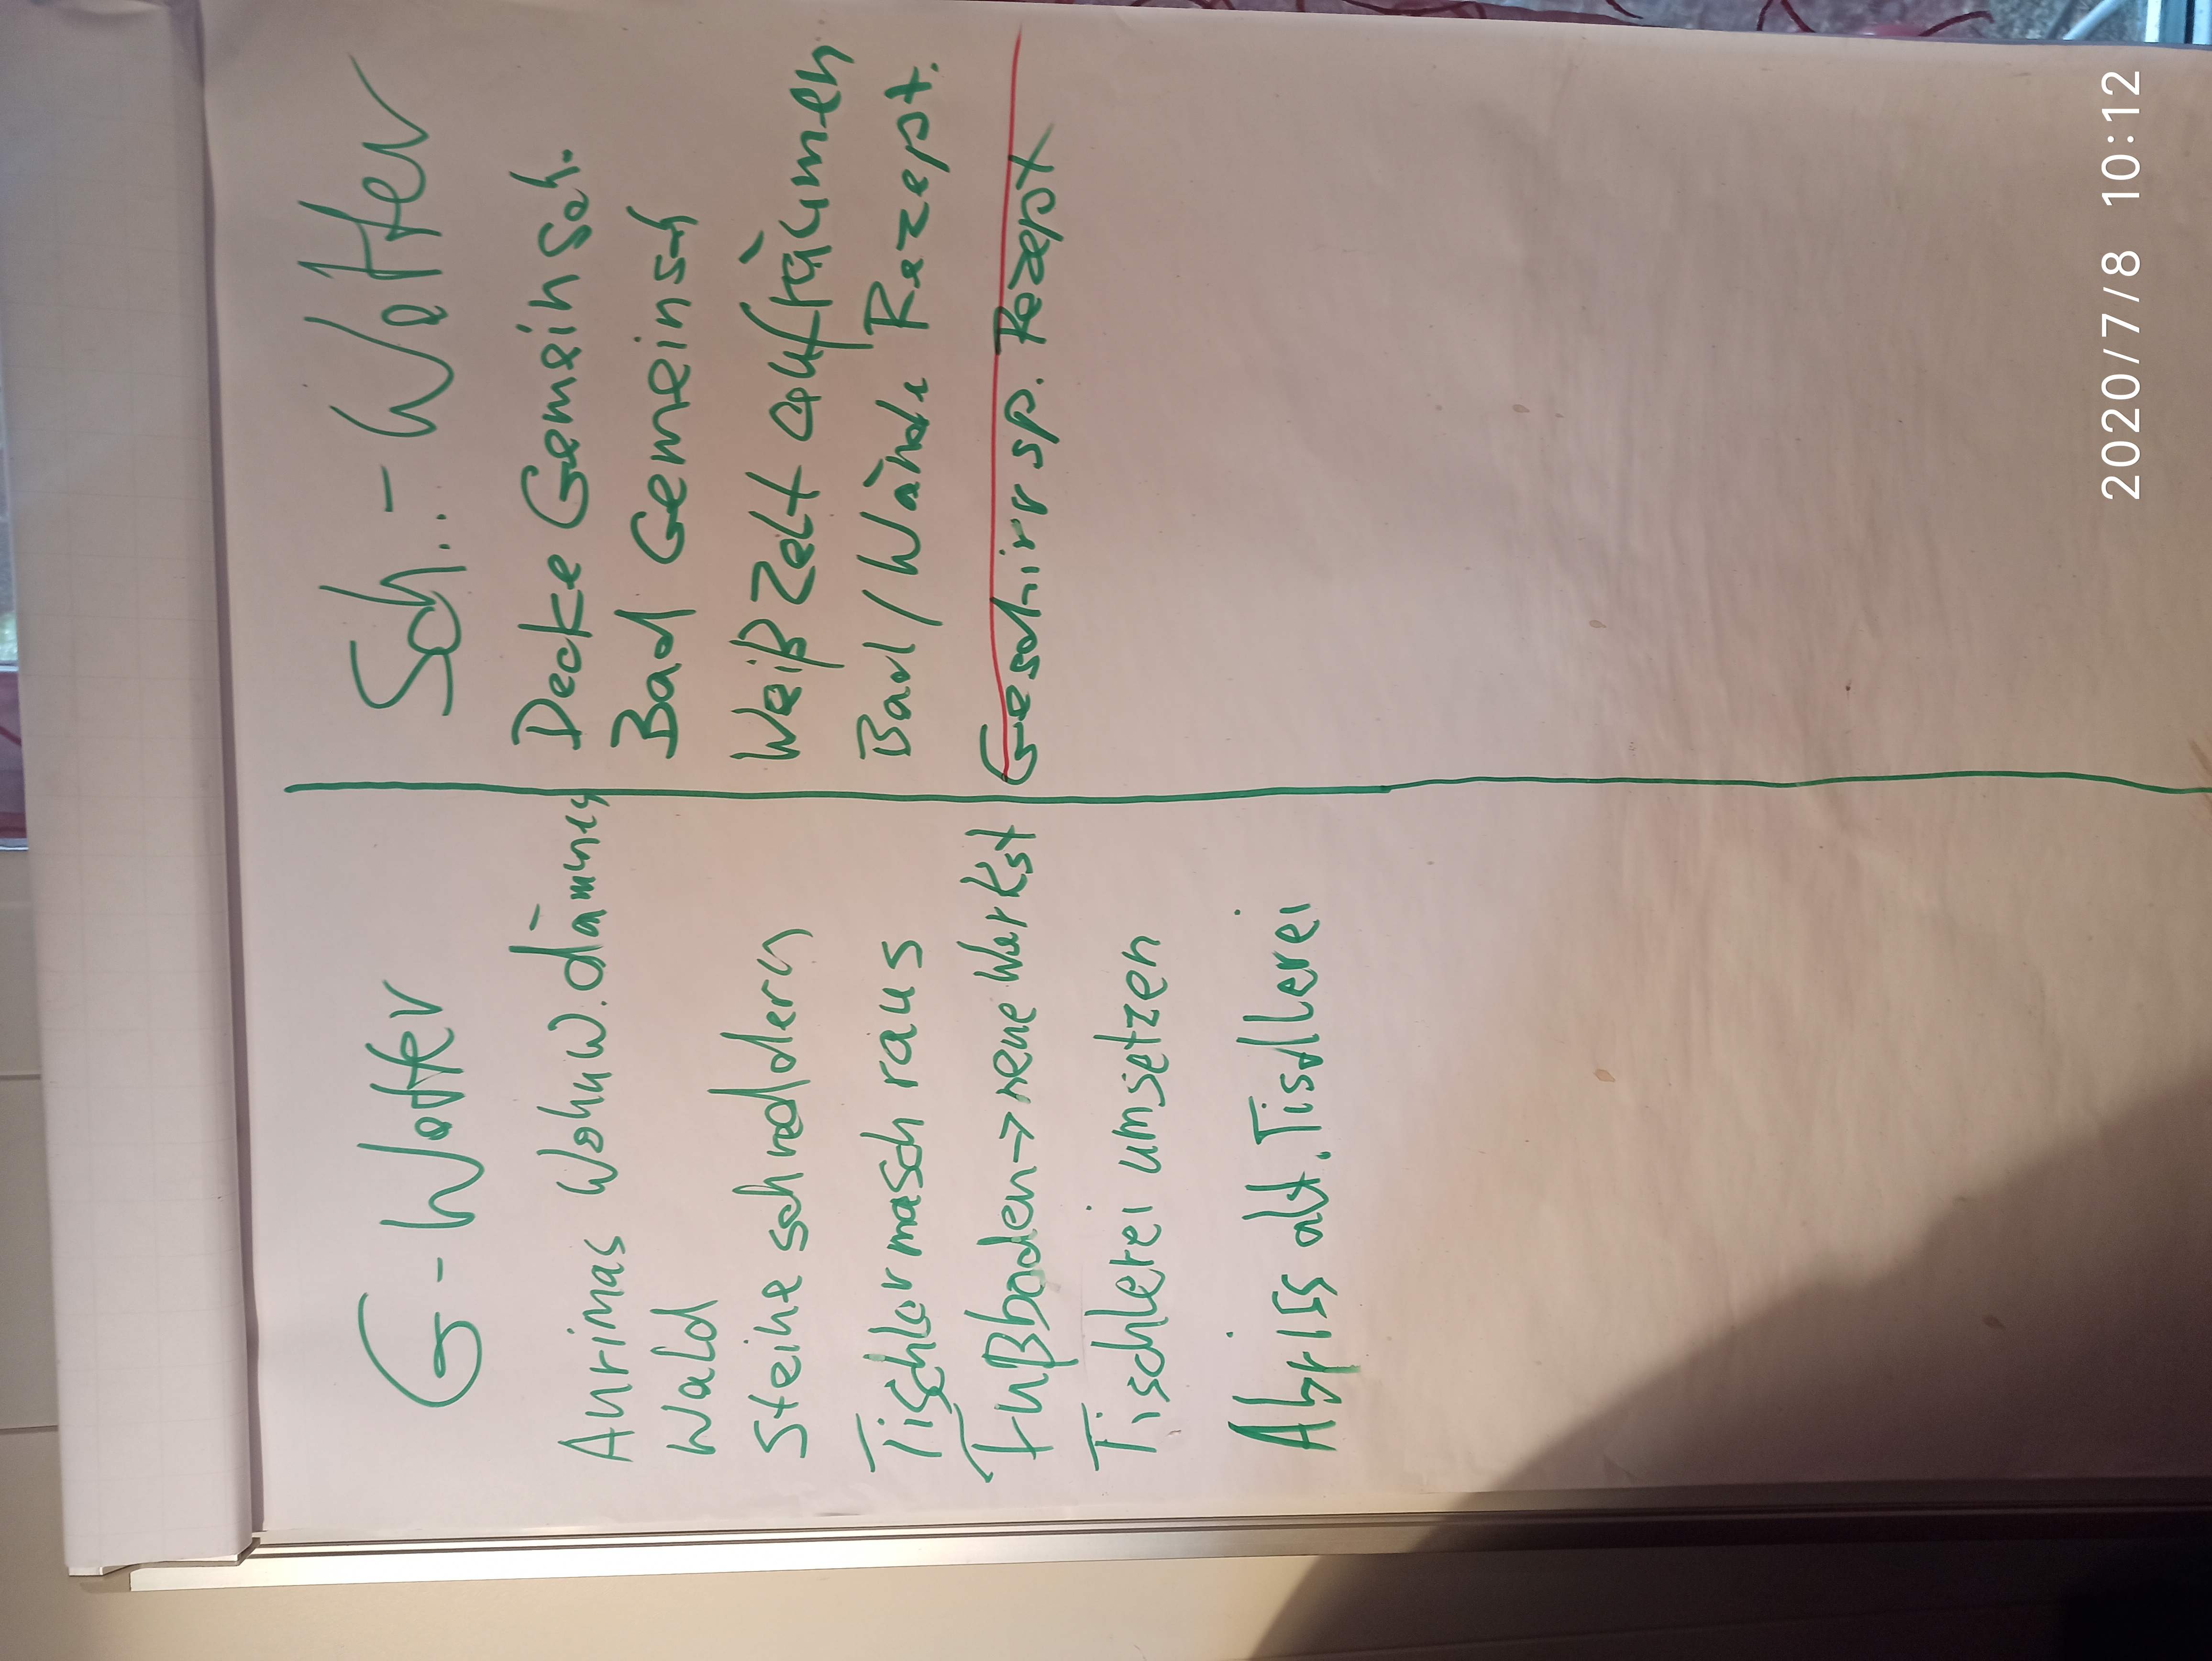 G-Wetter
Aurimas Wohnw. dämmen
Wald
Steine schreddern
Tischlermasch raus
Fußboden → neue Werkst
Tischlerei umsetzen
Abriss alt. Tischlerei
Sch.-Wetter
Decke Gemeinsch.
Bad Gemeinsch
Weiß Zelt aufräumen
Bad/Wände Rezept.
Geschirrsp. Rezept
2020/7/8 10:12